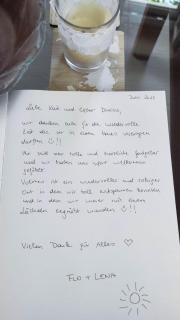 Juni 2023
Liebe Kati und lieber Dennis,
wir danken euch für die wundervolle
Zeit die wir in eurem Haus verbringen
durften ☺!!
Ihr seid sehr tolle und herzliche Gastgeber
und wir haben uns sofort willkommen
gefühlt.
ist ein wundervoller und ruhiger
Ort in dem wir toll entspannen konnten
und in dem wir immer mit einem
Lächeln begrüßt wurden ☺!!
Vielen Dank für Alles ♡
FLO + LENA